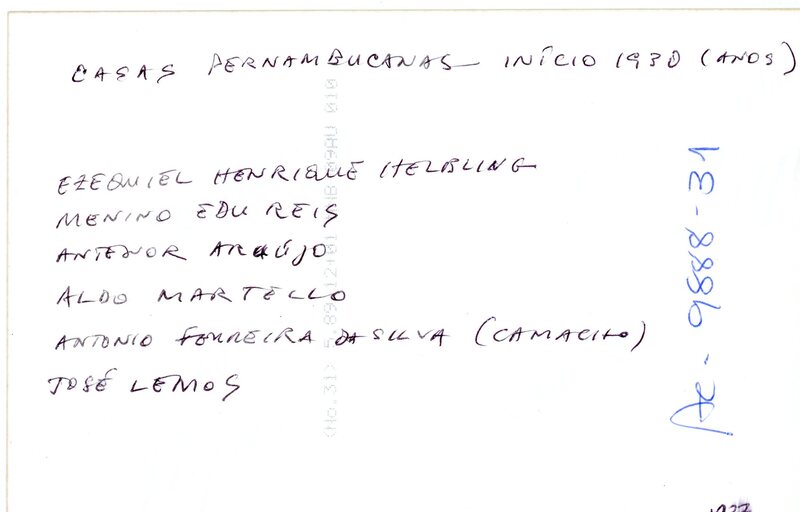 CASAS PERNAMBUCANAS INÍCIO 1930 (ANOS)
EZEQUIEL HENRIQUE HELBLING
MENINO EDU REIS
ANTENOR ARAÚJO
ALDO MARTELLO
ANTONIO FERREIRA DA SILVA (CAMACHO)
JOSÉ LEMOS
AC-9888-31